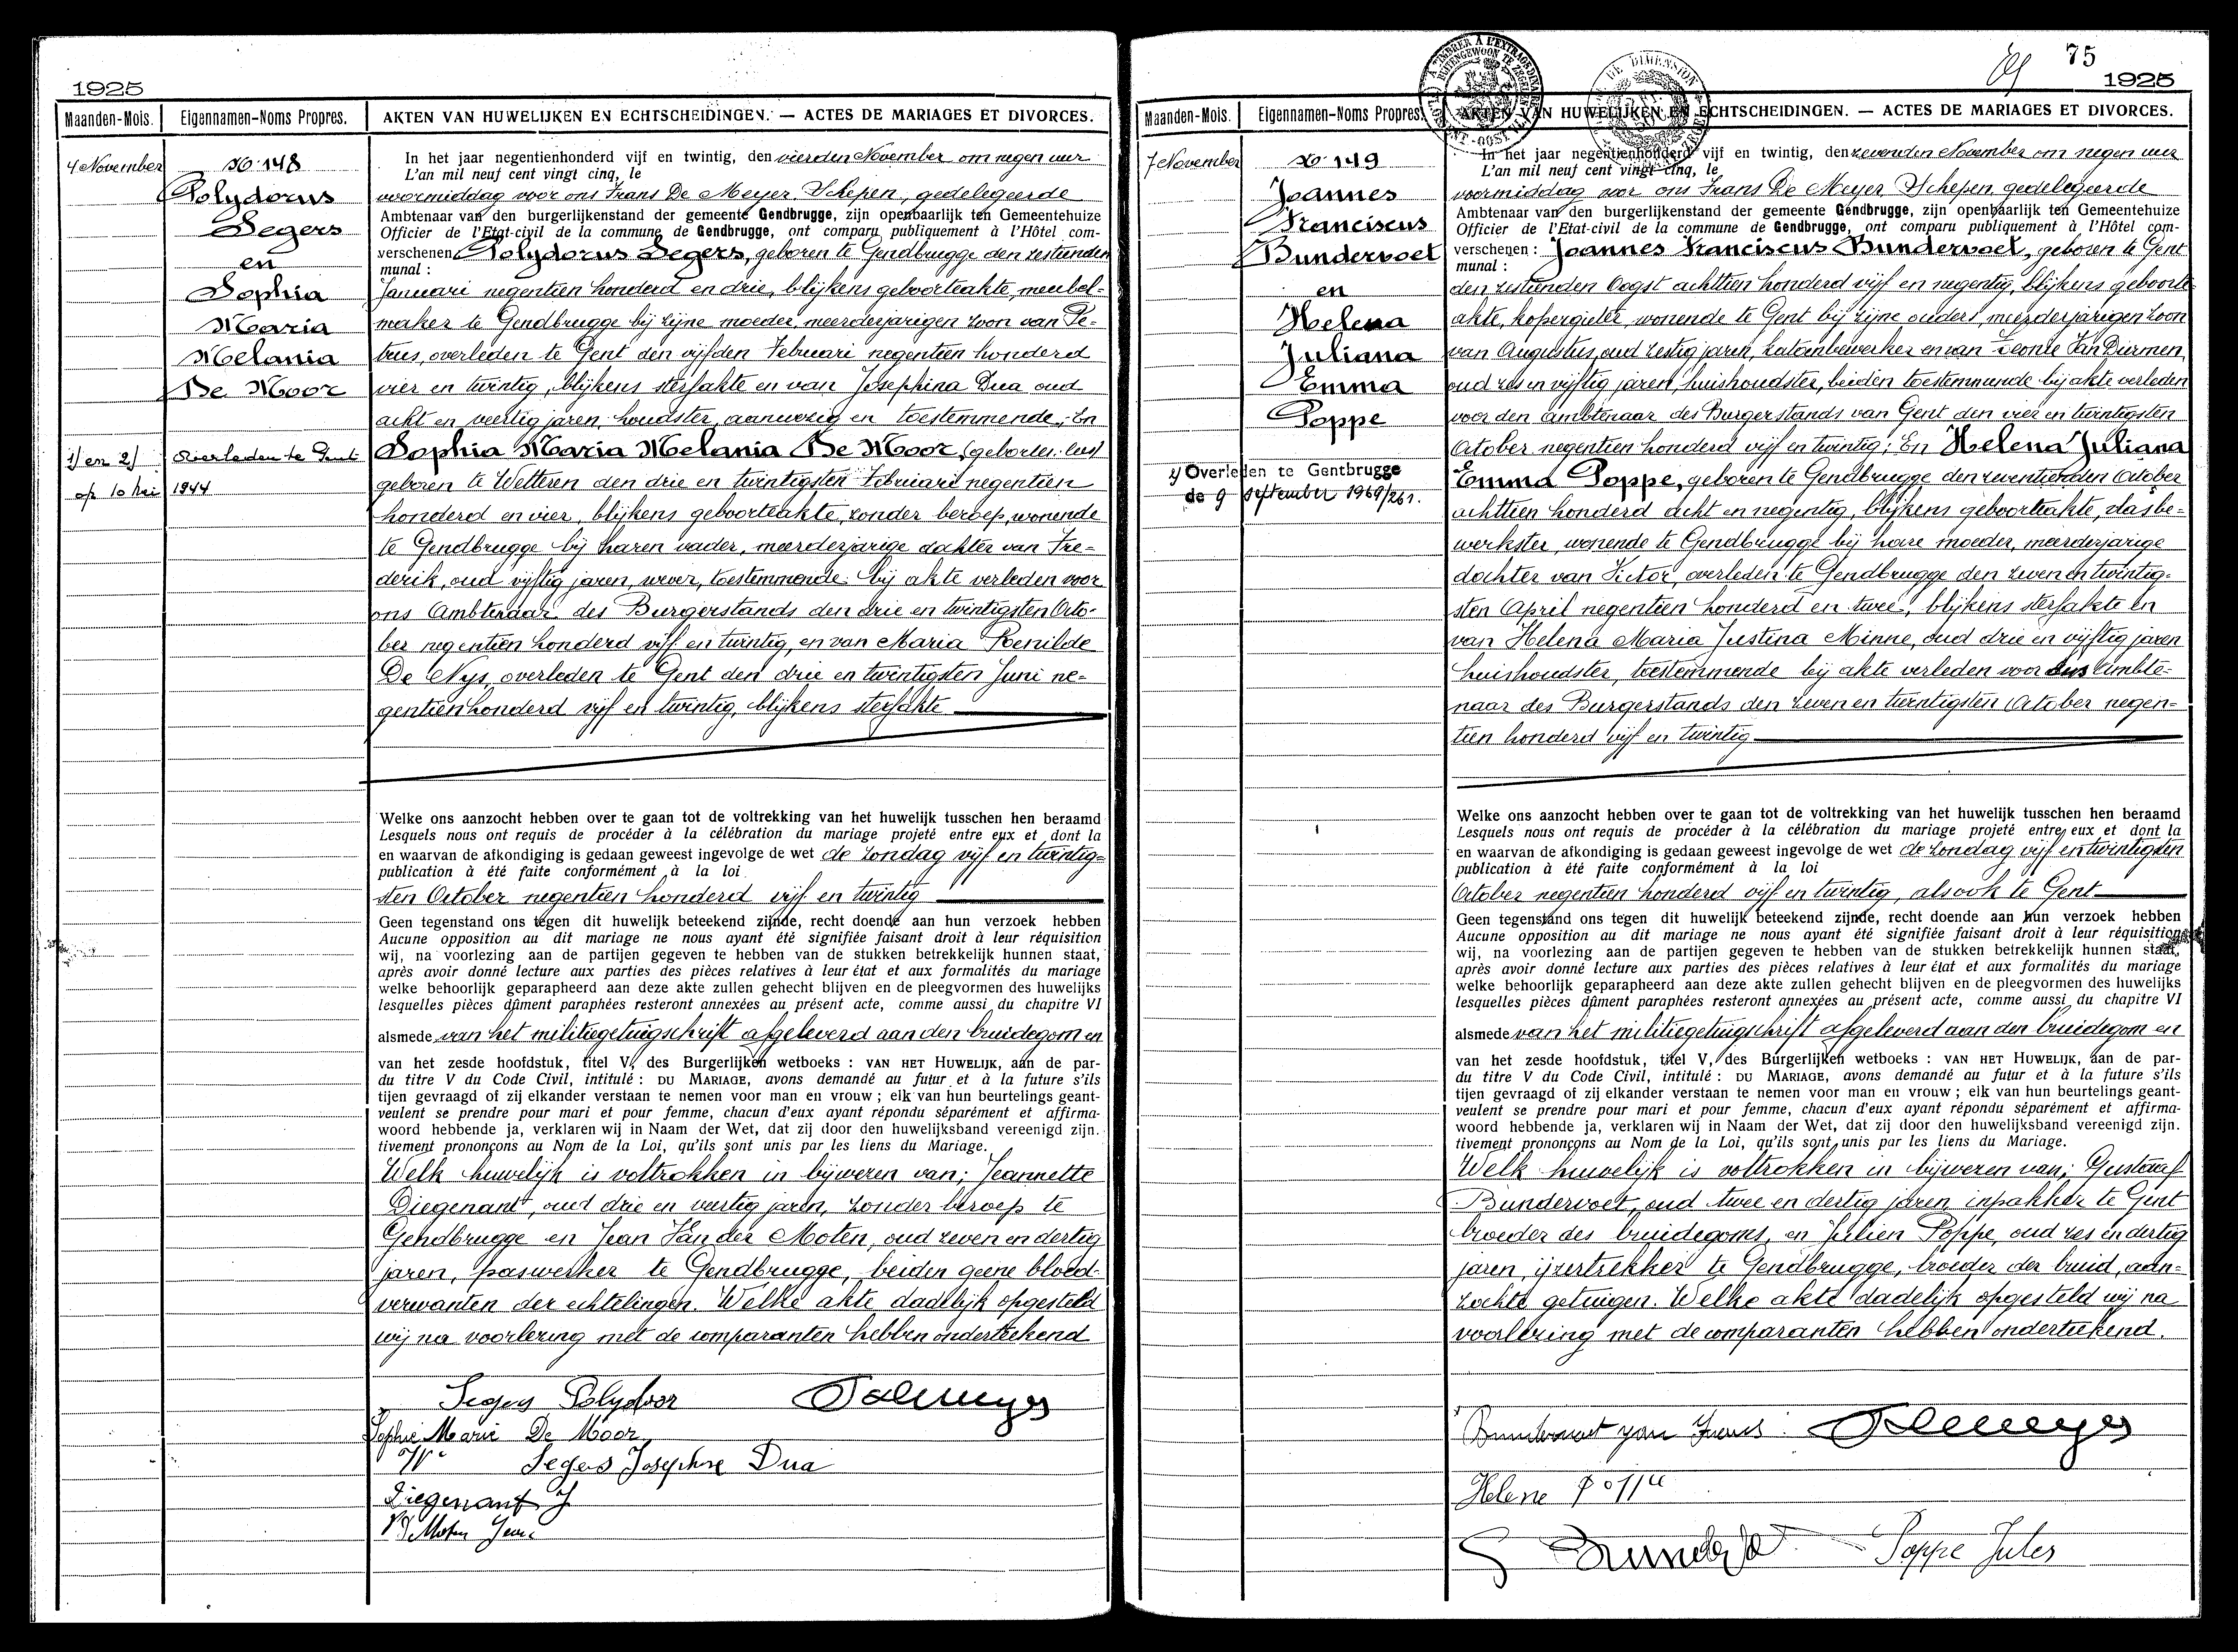 1925
Maanden-Mois.
Eigennamen-Noms Propres.
AKTEN VAN HUWELIJKEN EN ECHTSCHEIDINGEN. — ACTES DE MARIAGES ET DIVORCES.
4 November
No 148
Polydorus
Segers
en
Sophia
Maria
Melania
De Moor
1) en 2) overleden te Gent
op 10 Mei 1944
In het jaar negentienhonderd vijf en twintig, den vierden November om negen uur
L'an mil neuf cent vingt cinq, le
voormiddag voor ons Frans De Meyer, Schepen, gedelegeerde
Ambtenaar van den burgerlijkenstand der gemeente Gendbrugge, zijn openbaarlijk ten Gemeentehuize
Officier de l'Etat-civil de la commune de Gendbrugge, ont comparu publiquement à l'Hôtel com-
verschenen Polydorus Segers, geboren te Gendbrugge den zestienden
munal :
Januari negentien honderd en drie, blijkens geboorteakte, meubel-
maker te Gendbrugge bij zijne moeder, meerderjarigen zoon van Pe-
trus, overleden te Gent den vijfden Februari negentien honderd
vier en twintig, blijkens sterfakte en van Josephina Dua oud
acht en veertig jaren, houdster, aanwezig en toestemmende; En
Sophia Maria Melania De Moor,
geboren te Wetteren den drie en twintigsten Februari negentien
honderd en vier, blijkens geboorteakte, zonder beroep, wonende
te Gendbrugge bij haren vader, meerderjarige dochter van Fre-
derik, oud vijftig jaren, wever, toestemmende bij akte verleden voor
ons Ambtenaar des Burgerstands den drie en twintigsten Octo-
ber negentien honderd vijf en twintig, en van Maria Renilde
De Nijs, overleden te Gent den drie en twintigsten Juni ne-
gentien honderd vijf en twintig, blijkens sterfakte
Welke ons aanzocht hebben over te gaan tot de voltrekking van het huwelijk tusschen hen beraamd
Lesquels nous ont requis de procéder à la célébration du mariage projeté entre eux et dont la
en waarvan de afkondiging is gedaan geweest ingevolge de wet de zondag vijf en twintig-
publication à été faite conformément à la loi
sten October negentien honderd vijf en twintig
Geen tegenstand ons tegen dit huwelijk beteekend zijnde, recht doende aan hun verzoek hebben
Aucune opposition au dit mariage ne nous ayant été signifiée faisant droit à leur réquisition
wij, na voorlezing aan de partijen gegeven te hebben van de stukken betrekkelijk hunnen staat,
après avoir donné lecture aux parties des pièces relatives à leur état et aux formalités du mariage
welke behoorlijk geparapheerd aan deze akte zullen gehecht blijven en de pleegvormen des huwelijks
lesquelles pièces dûment paraphées resteront annexées au présent acte, comme aussi du chapitre VI
alsmede van het militiegetuigschrift afgeleverd aan den bruidegom en
van het zesde hoofdstuk, titel V, des Burgerlijken wetboeks : VAN HET HUWELIJK, aan de par-
du titre V du Code Civil, intitulé : DU MARIAGE, avons demandé au futur et à la future s'ils
tijen gevraagd of zij elkander verstaan te nemen voor man en vrouw ; elk van hun beurtelings geant-
veulent se prendre pour mari et pour femme, chacun d'eux ayant répondu séparément et affirma-
woord hebbende ja, verklaren wij in Naam der Wet, dat zij door den huwelijksband vereenigd zijn.
tivement prononçons au Nom de la Loi, qu'ils sont unis par les liens du Mariage.
Welk huwelijk is voltrokken in bijwezen van; Jeannette
Diegenant, oud drie en veertig jaren, zonder beroep te
Gendbrugge en Jean Van der Moten, oud zeven en dertig
jaren, paswerker te Gendbrugge, beiden geene bloed-
verwanten der echtelingen. Welke akte dadelijk opgesteld
wij na voorlezing met de comparanten hebben onderteekend
Segers Polydoor
Sophie Marie De Moor
Segers Josephine Dua
Diegenant J
75
1925
Maanden-Mois.
Eigennamen-Noms Propres.
AKTEN VAN HUWELIJKEN EN ECHTSCHEIDINGEN. — ACTES DE MARIAGES ET DIVORCES.
7 November
No 149
Joannes
Franciscus
Bundervoet
en
Helena
Juliana
Emma
Poppe
Overleden te Gentbrugge
de 9 september 1969/261.
In het jaar negentienhonderd vijf en twintig, den zevenden November om negen uur
L'an mil neuf cent vingt cinq, le
voormiddag voor ons Frans De Meyer, Schepen, gedelegeerde
Ambtenaar van den burgerlijkenstand der gemeente Gendbrugge, zijn openbaarlijk ten Gemeentehuize
Officier de l'Etat-civil de la commune de Gendbrugge, ont comparu publiquement à l'Hôtel com-
verschenen : Joannes Franciscus Bundervoet, geboren te Gent
munal :
den zestienden Oogst achttien honderd vijf en negentig, blijkens geboorte-
akte, kopergieter, wonende te Gent bij zijne ouders, meerderjarigen zoon
van Augustus, oud zestig jaren, katoenbewerker en van Leonie Van Diermen,
oud zes en vijftig jaren, huishoudster, beiden toestemmende bij akte verleden
voor den ambtenaar des Burgerstands van Gent den vier en twintigsten
October negentien honderd vijf en twintig; En Helena Juliana
Emma Poppe, geboren te Gendbrugge den zeventienden October
achttien honderd acht en negentig, blijkens geboorteakte, vlasbe-
werkster, wonende te Gendbrugge bij hare moeder, meerderjarige
dochter van Victor, overleden te Gendbrugge den zeven en twintig-
sten April negentien honderd en twee, blijkens sterfakte en
van Helena Maria Justina Minne, oud drie en vijftig jaren
huishoudster, toestemmende bij akte verleden voor ons Ambte-
naar des Burgerstands den zeven en twintigsten October negen-
tien honderd vijf en twintig
Welke ons aanzocht hebben over te gaan tot de voltrekking van het huwelijk tusschen hen beraamd
Lesquels nous ont requis de procéder à la célébration du mariage projeté entre eux et dont la
en waarvan de afkondiging is gedaan geweest ingevolge de wet de zondag vijf en twintigsten
publication à été faite conformément à la loi
October negentien honderd vijf en twintig, alsook te Gent
Geen tegenstand ons tegen dit huwelijk beteekend zijnde, recht doende aan hun verzoek hebben
Aucune opposition au dit mariage ne nous ayant été signifiée faisant droit à leur réquisition
wij, na voorlezing aan de partijen gegeven te hebben van de stukken betrekkelijk hunnen staat,
après avoir donné lecture aux parties des pièces relatives à leur état et aux formalités du mariage
welke behoorlijk geparapheerd aan deze akte zullen gehecht blijven en de pleegvormen des huwelijks
lesquelles pièces dûment paraphées resteront annexées au présent acte, comme aussi du chapitre VI
alsmede van het militiegetuigschrift afgeleverd aan den bruidegom en
van het zesde hoofdstuk, titel V, des Burgerlijken wetboeks : VAN HET HUWELIJK, aan de par-
du titre V du Code Civil, intitulé : DU MARIAGE, avons demandé au futur et à la future s'ils
tijen gevraagd of zij elkander verstaan te nemen voor man en vrouw ; elk van hun beurtelings geant-
veulent se prendre pour mari et pour femme, chacun d'eux ayant répondu séparément et affirma-
woord hebbende ja, verklaren wij in Naam der Wet, dat zij door den huwelijksband vereenigd zijn.
tivement prononçons au Nom de la Loi, qu'ils sont unis par les liens du Mariage.
Welk huwelijk is voltrokken in bijwezen van; Gustaaf
Bundervoet, oud twee en dertig jaren, inpakker te Gent
broeder des bruidegoms, en Julien Poppe, oud zes en dertig
jaren, ijzertrekker te Gendbrugge, broeder der bruid, aan-
zochte getuigen. Welke akte dadelijk opgesteld wij na
voorlezing met de comparanten hebben onderteekend.
Helene Poppe
Poppe Jules